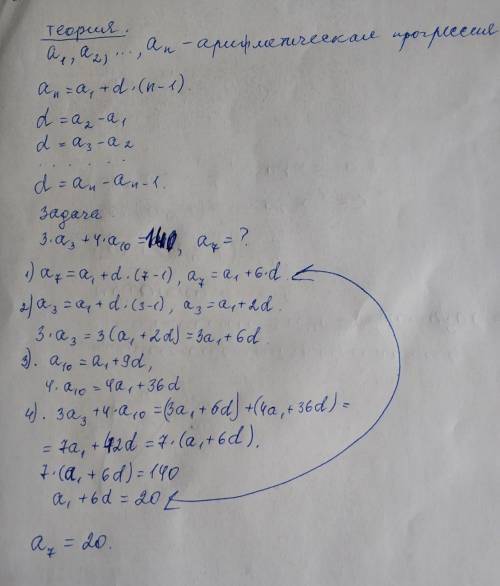 теория:
a₁, a₂, ..., aₙ – арифметическая прогрессия
aₙ = a₁ + d·(n–1).
d = a₂ – a₁
d = a₃ – a₂
. . . . . .
d = aₙ – aₙ – 1.
Задача
3·a₃ + 4·a₁₀ = 140, a₇ = ?
1) a₇ = a₁ + d·(7–1), a₇ = a₁ + 6·d.
2) a₃ = a₁ + d·(3–1), a₃ = a₁ + 2d.
3·a₃ = 3(a₁ + 2d) = 3a₁ + 6d.
3). a₁₀ = a₁ + 9d,
4·a₁₀ = 4a₁ + 36d
4). 3a₃ + 4·a₁₀ = (3a₁ + 6d) + (4a₁ + 36d) =
= 7a₁ + 42d = 7·(a₁ + 6d).
7·(a₁ + 6d) = 140
a₁ + 6d = 20
a₇ = 20.